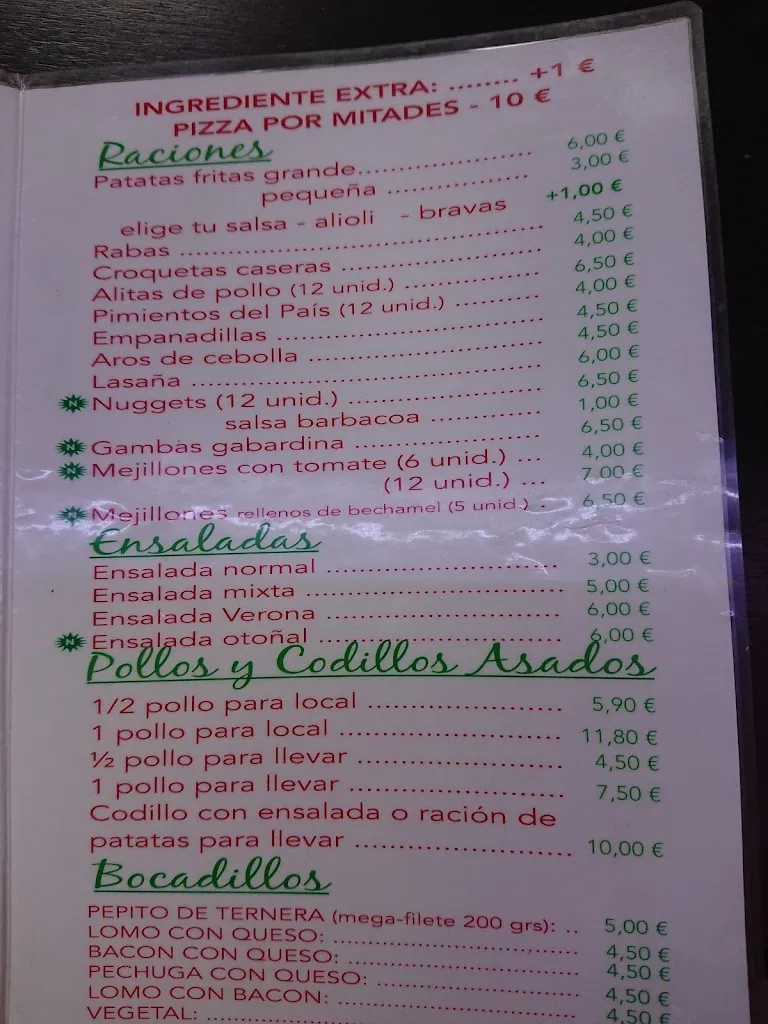 INGREDIENTE EXTRA: ........ +1 €
PIZZA POR MITADES - 10 €
Raciones
Patatas fritas grande........................ 6,00 €
pequeña .................... 3,00 €
elige tu salsa - alioli - bravas +1,00 €
Rabas .................................................. 4,50 €
Croquetas caseras ........................... 4,00 €
Alitas de pollo (12 unid.) .................. 6,50 €
Pimientos del País (12 unid.) ........... 4,00 €
Empanadillas ..................................... 4,50 €
Aros de cebolla ................................ 4,50 €
Lasaña ................................................ 6,00 €
N Nuggets (12 unid.) .......................... 6,50 €
salsa barbacoa ............... 1,00 €
N Gambas gabardina ......................... 6,50 €
N Mejillones con tomate (6 unid.) ... 4,00 €
(12 unid.) ... 7,00 €
N Mejillones rellenos de bechamel (5 unid.) . 6,50 €
Ensaladas
Ensalada normal ............................... 3,00 €
Ensalada mixta .................................. 5,00 €
Ensalada Verona ............................... 6,00 €
N Ensalada otoñal ................................ 6,00 €
Pollos y Codillos Asados
1/2 pollo para local .......................... 5,90 €
1 pollo para local .............................. 11,80 €
½ pollo para llevar ........................... 4,50 €
1 pollo para llevar ............................ 7,50 €
Codillo con ensalada o ración de
patatas para llevar ............................ 10,00 €
Bocadillos
PEPITO DE TERNERA (mega-filete 200 grs): .. 5,00 €
LOMO CON QUESO: ................................ 4,50 €
BACON CON QUESO: .............................. 4,50 €
PECHUGA CON QUESO: .......................... 4,50 €
LOMO CON BACON: ............................... 4,50 €
VEGETAL: ................................................ 4,50 €